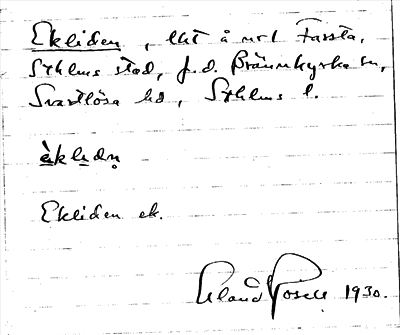 Ekliden, lht å nr 1 Farsta,
Sthlms stad, f.d. Brännkyrka sn,
Svartlösa hd, Sthlms l.
èklidn̥
Ekliden ek.
Erland Rosell 1930.